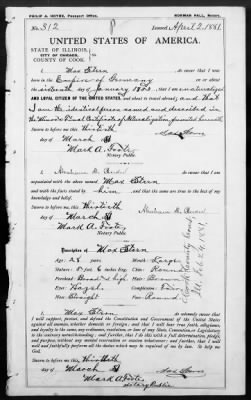 PHILIP A. HOYNE, Passport Office.
NORMAN HALL, Notary.
No. 312
Issued April 2, 1881
UNITED STATES OF AMERICA.
STATE OF ILLINOIS,
CITY OF CHICAGO,
COUNTY OF COOK.
I, Max Stern do swear that I was
born in the Empire of Germany on or about the
sixteenth day of January 1853 that I am a naturalized
AND LOYAL CITIZEN OF THE UNITED STATES, and about to travel abroad, and that
I am the identical person named and described in
the
Sworn to before me, this thirtieth
day of March
Mark A. Foote,
Notary Public.
I,
do swear that I am
acquainted with the above named Max Stern
and with the facts stated by him, and that the same are true to the best of my
knowledge and belief.
Sworn to before me, this thirtieth
day of March
Mark A. Foote,
Notary Public.
Description of Max Stern
Age: 28 years
Mouth: Large
Stature: 5 feet 6 inches Eng.
Chin: Round
Forehead: Broad & high
Hair: Brown
Eyes: Hazel
Complexion:
Nose: Straight
Face: Round
I, Max Stern do swear that I will
support, protect and defend the Constitution and Government of the United States
against all enemies, whether domestic or foreign; and that I will bear true faith, allegiance,
and loyalty to the same, any ordinance, resolution or law of any State, Convention or Legislature
to the contrary notwithstanding; and further, that I do this with a full determination, pledge,
and purpose, without any mental reservation or evasion whatsoever; and further, that I will
well and faithfully perform all the duties which may be required of me by law. So help me
God.
Sworn to before me, this thirtieth
day of March
Mark A. Foote
Notary Public